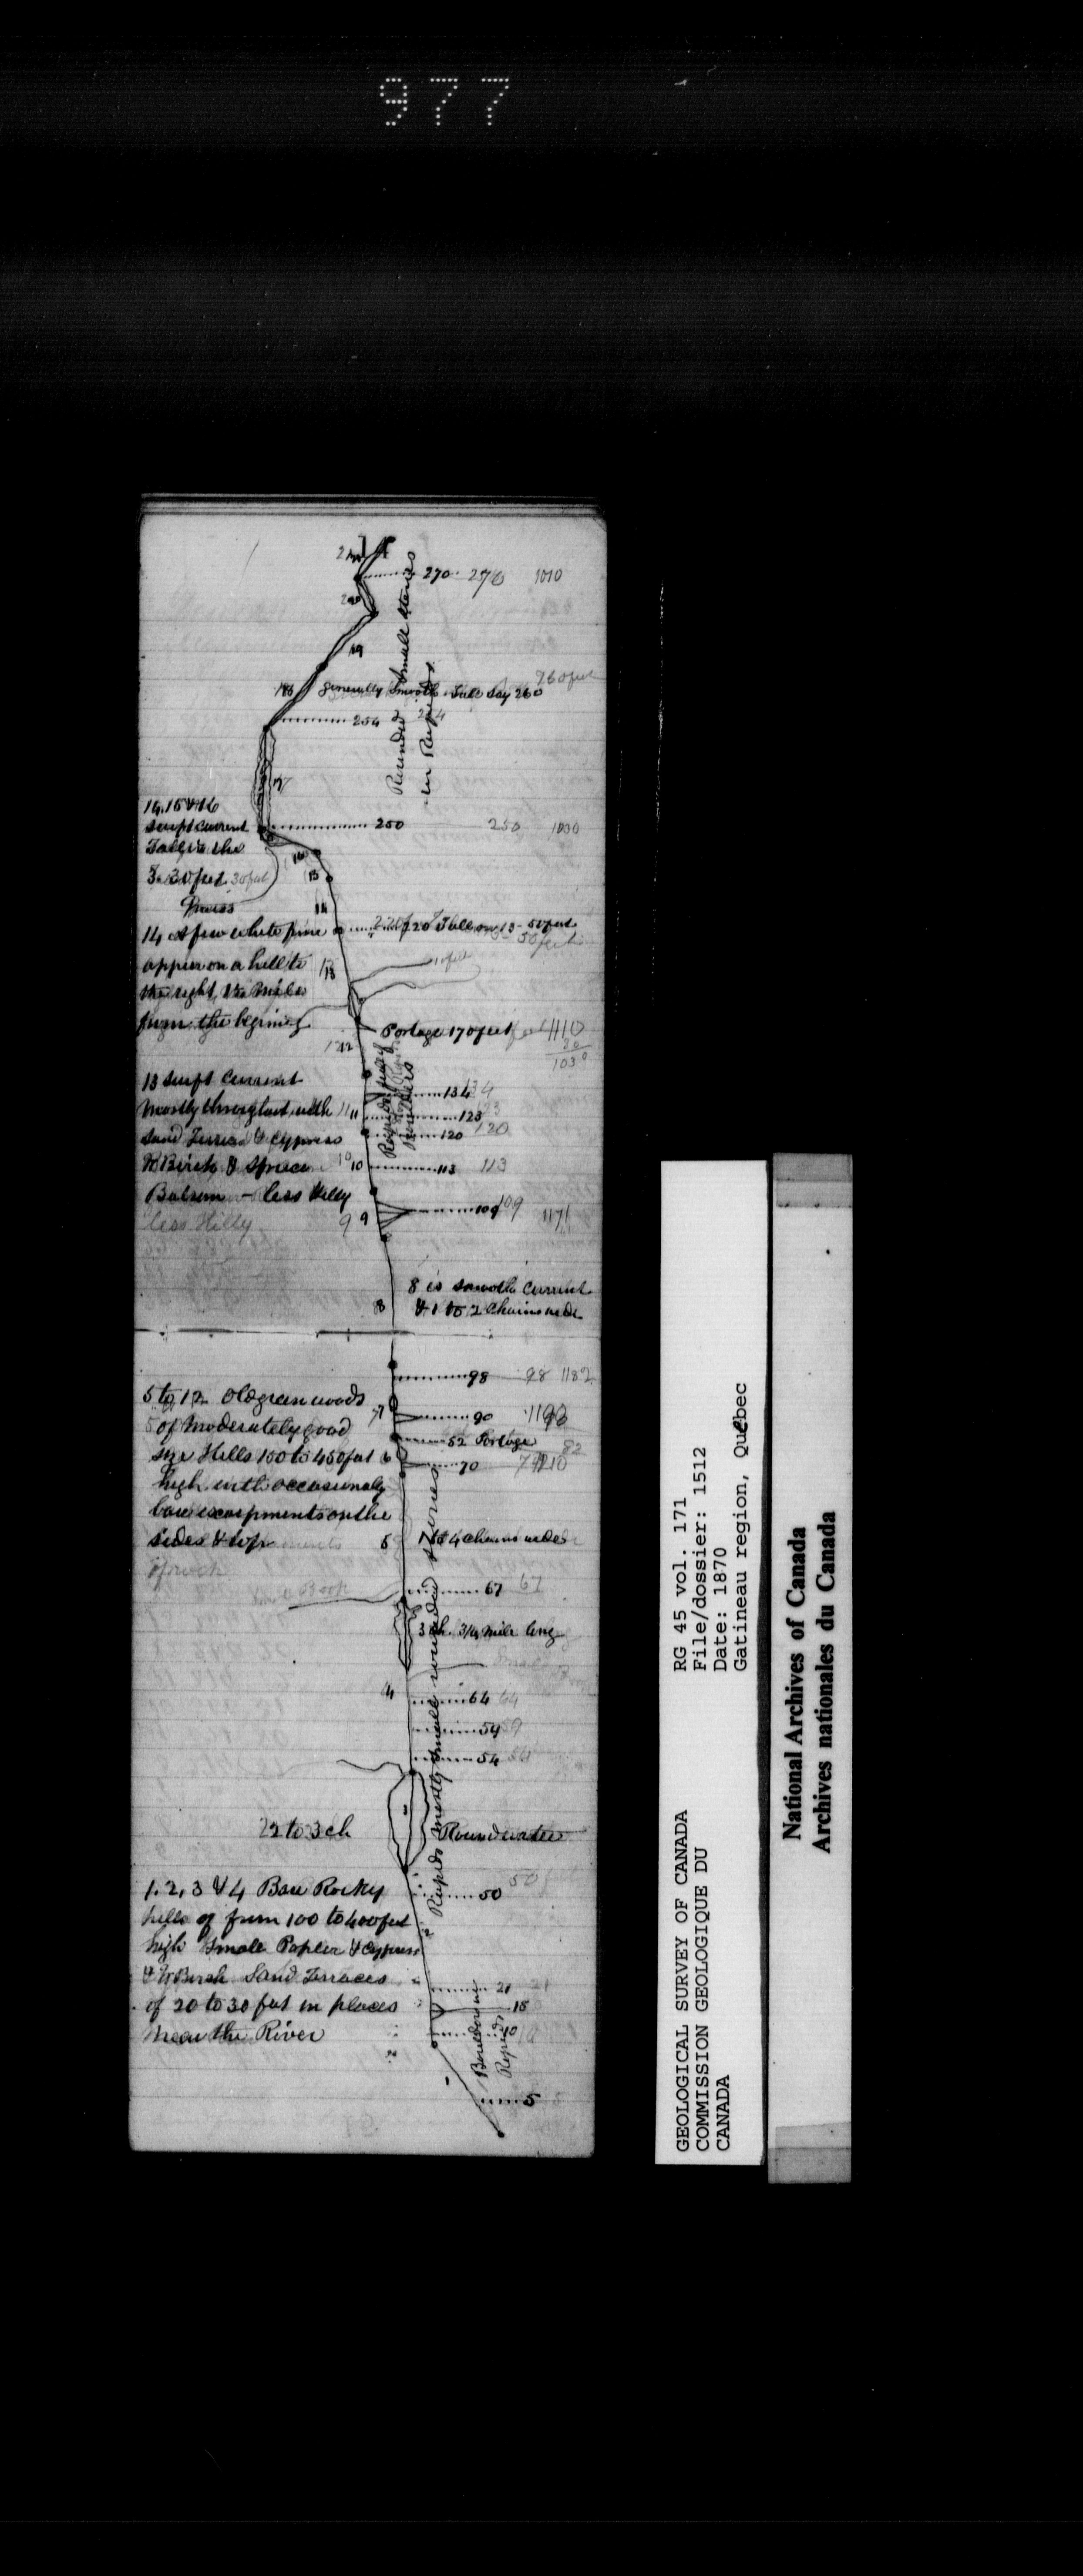 977
270 270 1010
19
Rounded Small Stones
in Rapids
260 feet
Generally Smooth Fall say 260
254 254
17
14.15 & 16
swift current
250 250 1030
3-30 feet 30 feet
15
14
14 A few white pine
220 Fall on 13 - 50 feet
50 feet
appear on a hill to
13
the right, 1½ Miles
from the begining
Portage 170 feet 1110
80
1030
12
Boulders
13 swift current
134 134
mostly throughout with
11 123 123
sand Terrace & Cypress
120 120
W Birch & Spruce
10 10 113 113
Balsam - less Hilly
109 109 1171
less Hilly
9 9
8 is smooth current
8 & 1 to 2 chains wide
98 98 1182
5 to 12 Old green woods
7 90
of Moderately good
52 Portage 82
size Hills 100 to 450 feet 6
70
high with occasionaly
bare escarpments on the
sides & top
5 to 4 chains wide
of rock
67 67
3 ch. 3/4 mile long
Small
4 64 64
59 59
54 54
Rapids mostly Small rounded stones
2 to 3 ch
Round water
50
1, 2, 3 & 4 Bare Rocky
50
hills of from 100 to 400 feet
high Small Poplar & Cypress
& W Birch Sand Terraces
21
of 20 to 30 feet in places
18
near the River
10
Boulders in
Rapids
5
GEOLOGICAL SURVEY OF CANADA
COMMISSION GEOLOGIQUE DU
CANADA
RG 45 vol. 171
File/dossier: 1512
Date: 1870
Gatineau region, Québec
National Archives of Canada
Archives nationales du Canada